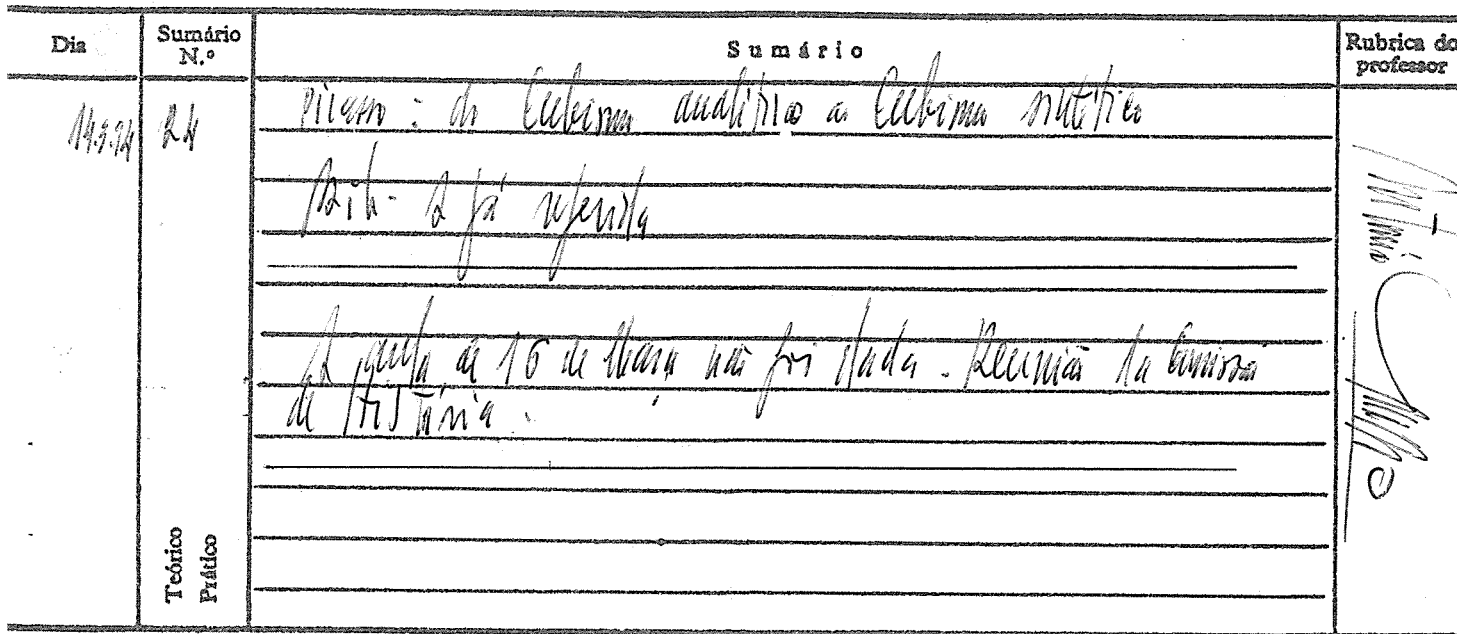 Dia
Sumário N.º
Sumário
Rubrica do professor
14.3.94
24
Picasso: do Cubismo analítico ao Cubismo sintético
Bib - A já referida
A aula de 16 de Março não foi dada. Reunião da Comissão
de História.
Teórico
Prático